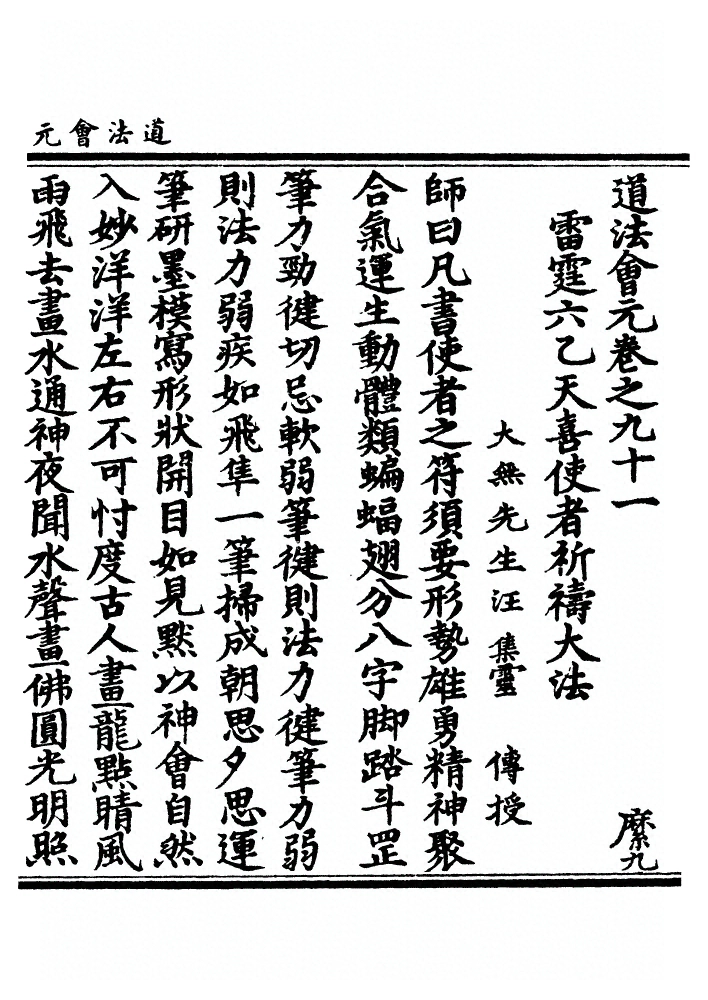 道法會元
道法會元卷之九十一
縻九
雷霆六乙天喜使者祈禱大法
大無先生汪集靈 傳授
師曰凡書使者之符須要形勢雄勇精神聚
合氣運生動體類蝙蝠翅分八字脚踏斗罡
筆力勁健切忌軟弱筆徤則法力徤筆力弱
則法力弱疾如飛隼一筆掃成朝思夕思運
筆研墨模寫形狀開目如見默以神會自然
入妙洋洋左右不可忖度古人畫龍點睛風
雨飛去畫水通神夜聞水聲畫佛圓光明照